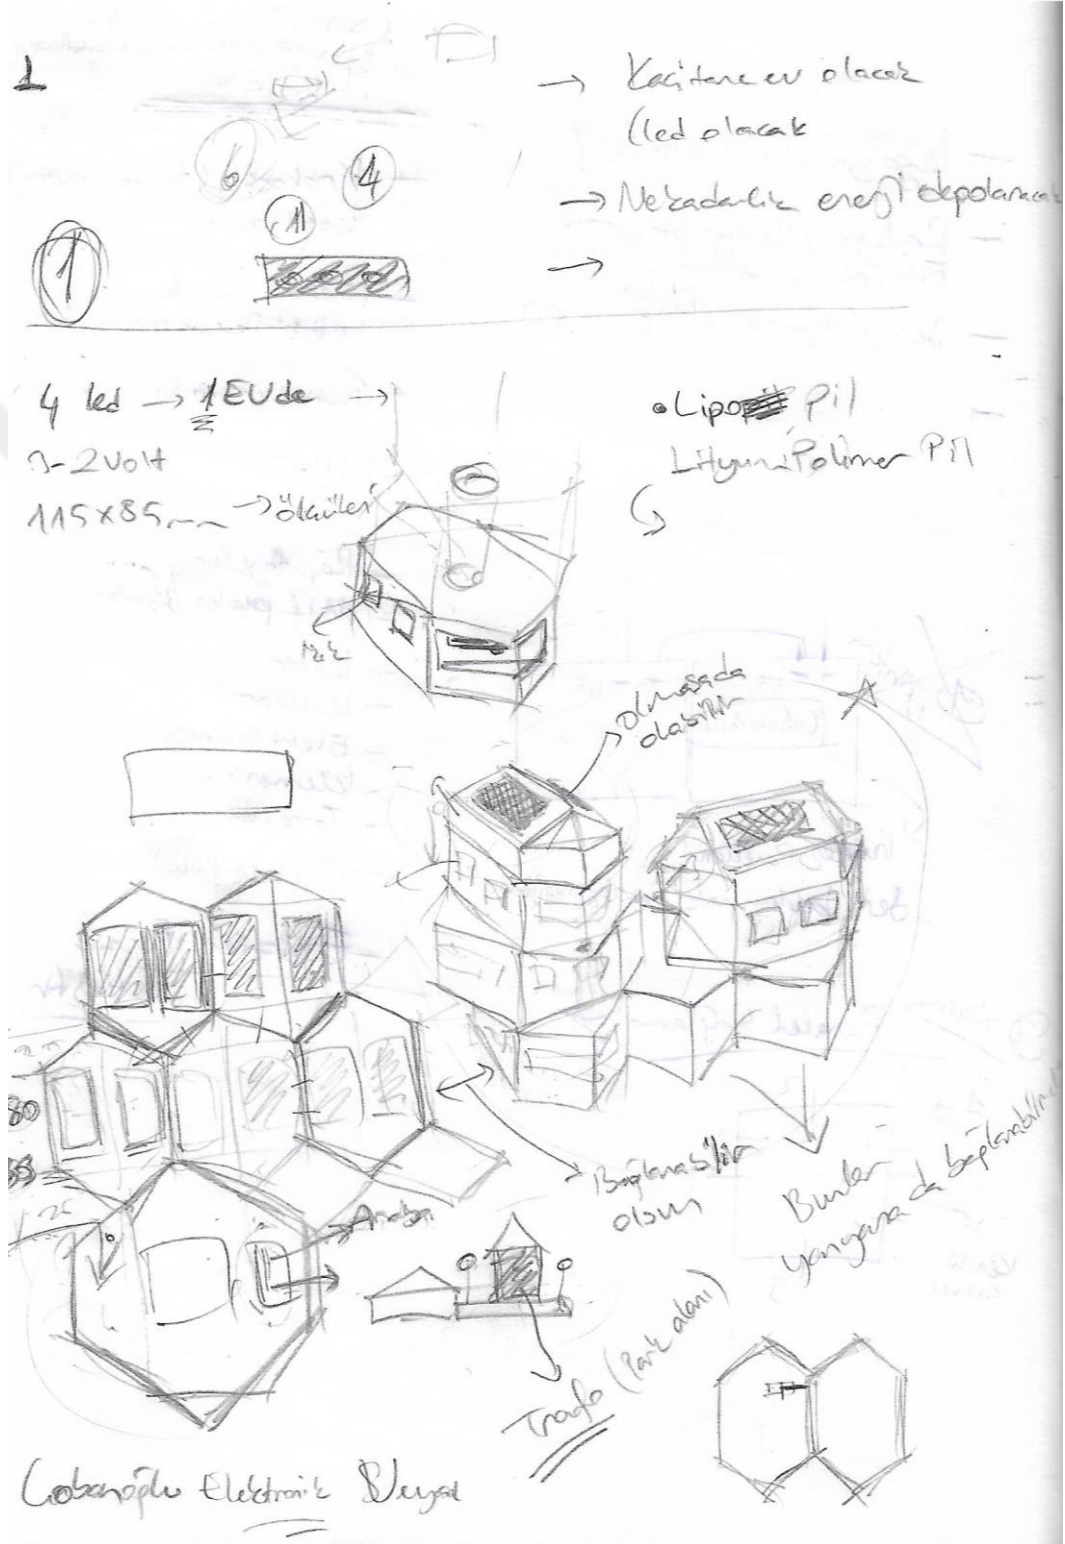 1
→ Kaç tane ev olacak
(led olacak
6
4
11
→ Ne kadarlık enerji depolanacak
1
→
4 led → 1 EVde →
3-2 volt
115x85mm → ölçüleri
• Lipo pil
Lityum Polimer Pil
olmasada
olabilir
80
25
Bağlanabilir
olsun
Bunlar
yanyana da bağlanabilmeli
Trafo (Park alanı)
Çobanoğlu Elektronik